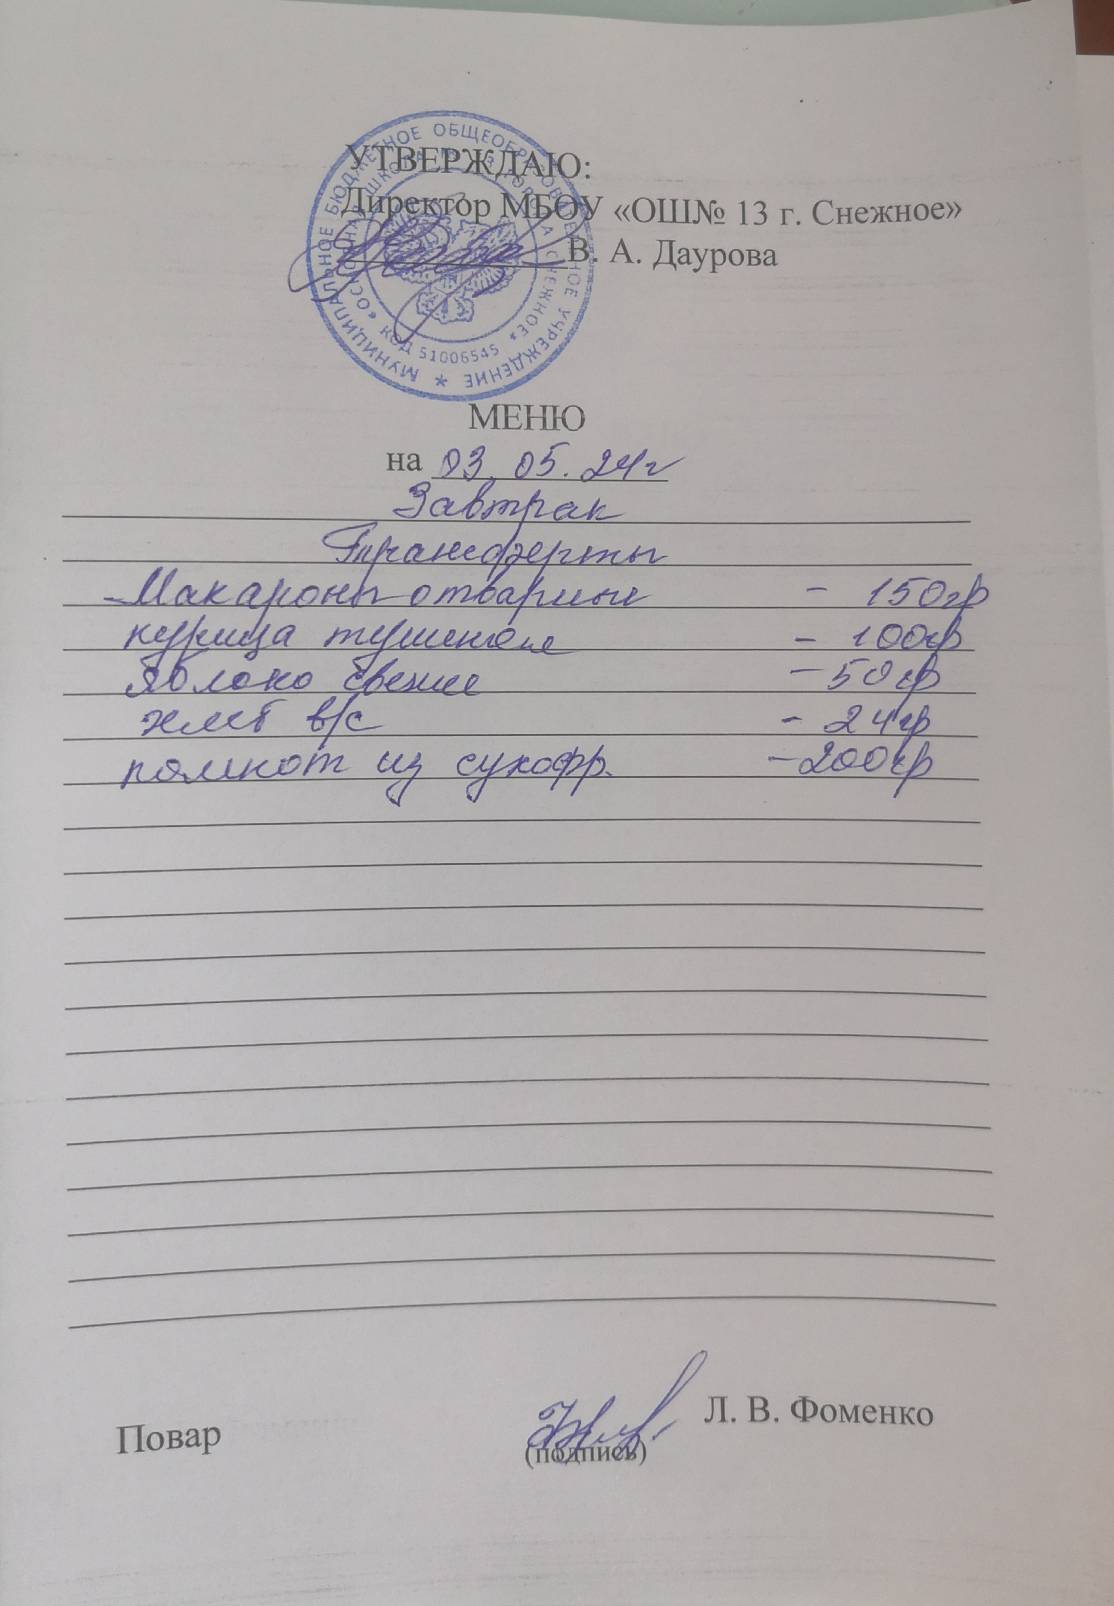 УТВЕРЖДАЮ:
Директор МБОУ «ОШ№ 13 г. Снежное»
В. А. Даурова
МУНИЦИПАЛЬНОЕ БЮДЖЕТНОЕ ОБЩЕОБРАЗОВАТЕЛЬНОЕ УЧРЕЖДЕНИЕ *
«ОСНОВНАЯ ШКОЛА ГОРОДА СНЕЖНОЕ»
КОД 51006545
МЕНЮ
на 03.05.24г
Завтрак
Трансферты
Макароны отварные - 150гр
курица тушеная - 100гр
яблоко свежее - 50гр
хлеб в/с - 24гр
компот из сухофр. - 200гр
Повар
(подпись)
Л. В. Фоменко